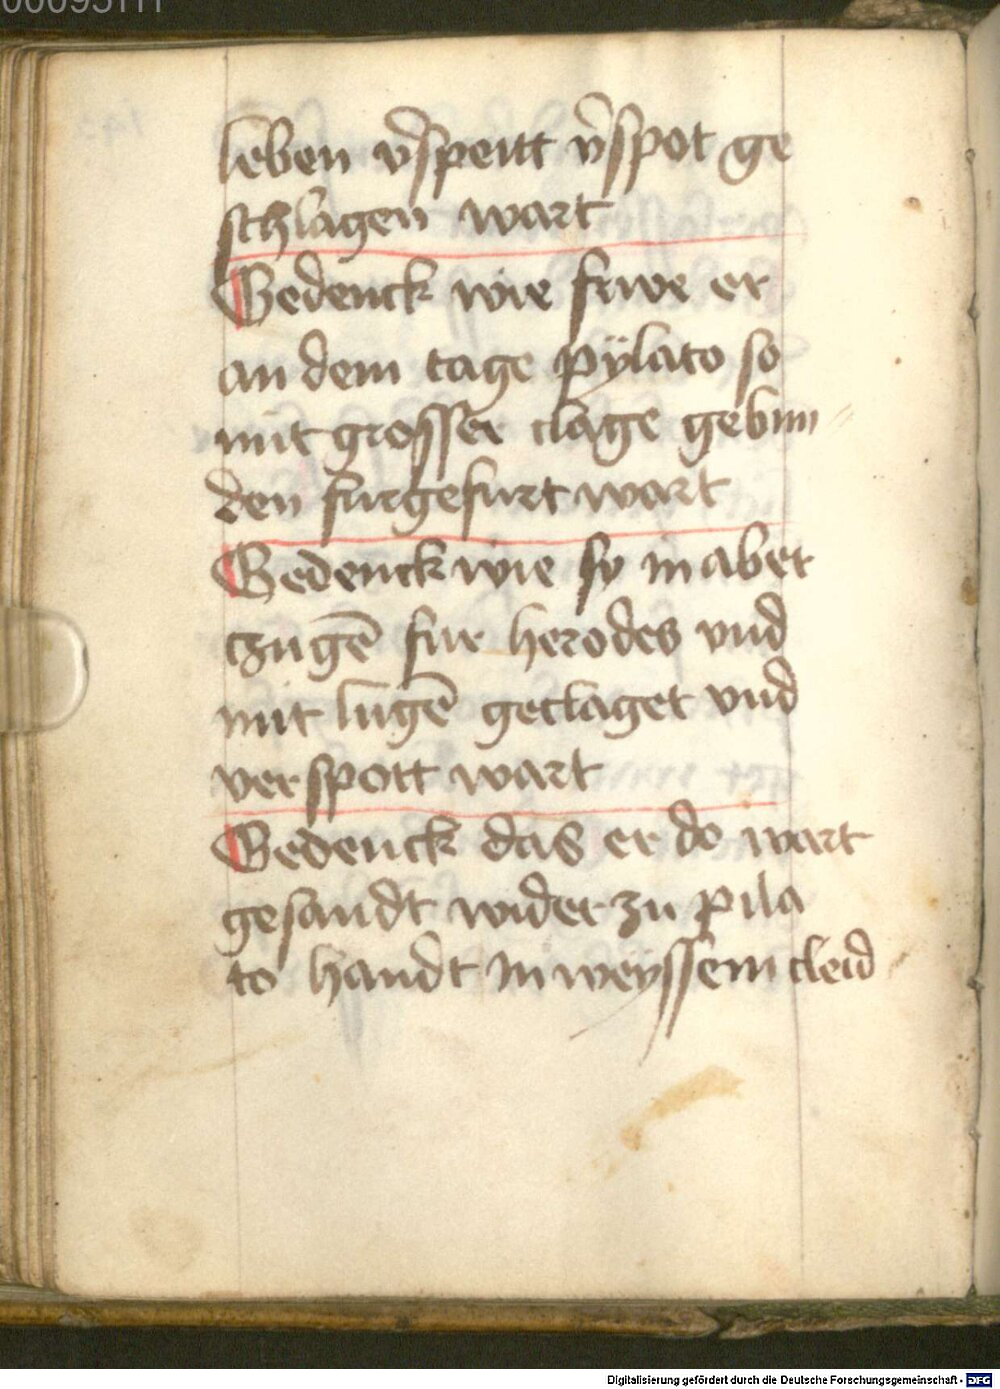 00095111
leben v̾speitt v̾spot ge
schlagen wart
Gedenck wie fruͤwe er
an dem tage pÿlato so
mit grosser clage gebun
den furgefurt wart
Gedenck wie sy in aber
czugē fur herodes vnd
mit lugē geclaget vnd
verspott wart
Gedenck das er do wart
gesandt wider zu pila
to handt in weyssem cleid
Digitalisierung gefördert durch die Deutsche Forschungsgemeinschaft - DFG